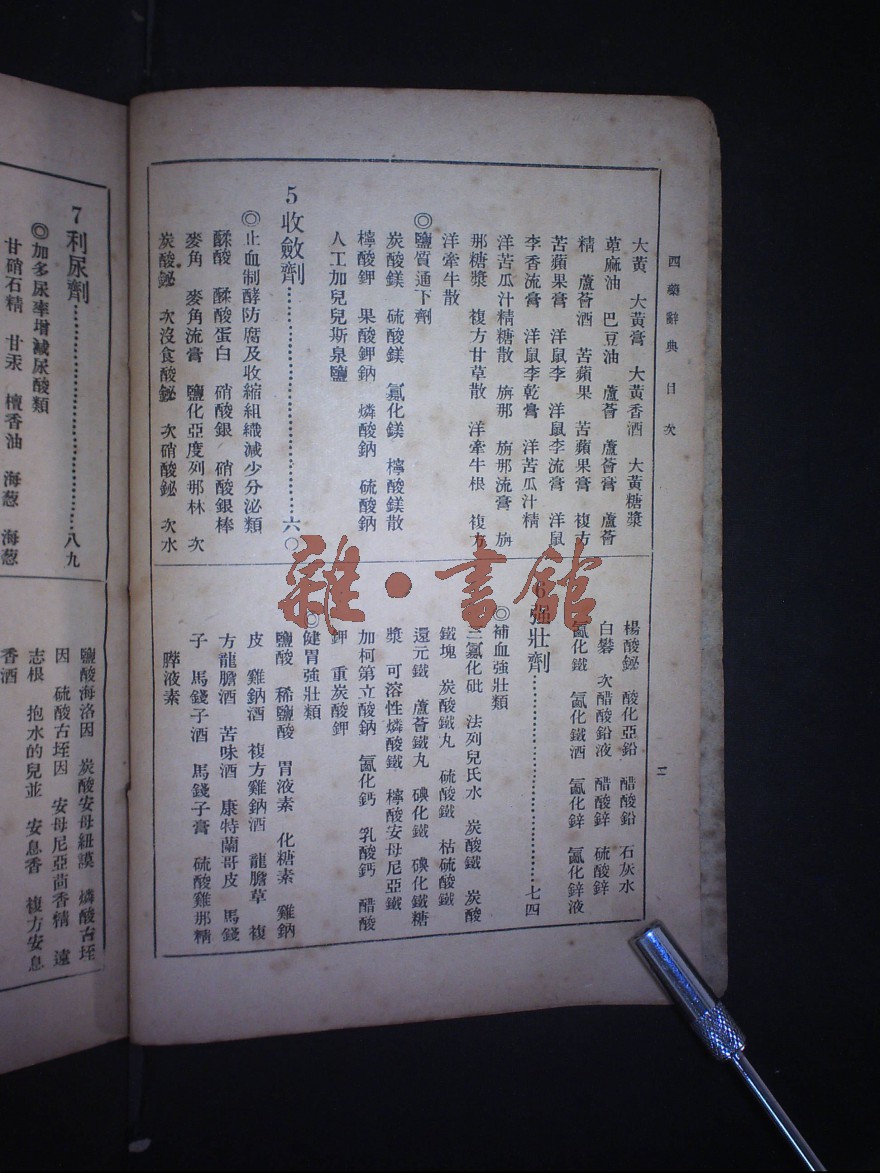 西藥辭典 目次
二
大黃 大黃膏 大黃香酒 大黃糖漿
萆麻油 巴豆油 蘆薈 蘆薈膏 蘆薈
精 蘆薈酒 苦蘋果 苦蘋果膏 複方
苦蘋果膏 洋鼠李 洋鼠李流膏 洋鼠
李香流膏 洋鼠李乾膏 洋苦瓜汁精
洋苦瓜汁精糖散 旃那 旃那流膏 旃
那糖漿 複方甘草散 洋牽牛根 複方
洋牽牛散
◎鹽質通下劑
炭酸鎂 硫酸鎂 氯化鎂 檸酸鎂散
檸酸鉀 果酸鉀鈉 燐酸鈉 硫酸鈉
人工加兒兒斯泉鹽
5 收斂劑……………………六〇
◎止血制酵防腐及收縮組織減少分泌類
醛酸 醛酸蛋白 硝酸銀 硝酸銀棒
麥角 麥角流膏 鹽化亞度列那林 次
炭酸鉍 次沒食酸鉍 次硝酸鉍 次水
楊酸鉍 酸化亞鉛 醋酸鉛 石灰水
白礬 次醋酸鉛液 醋酸鋅 硫酸鋅
氯化鐵 氯化鐵酒 氯化鋅 氯化鋅液
6 強壯劑……………………七四
◎補血強壯類
三氯化砒 法列兒氏水 炭酸鐵 炭酸
鐵塊 炭酸鐵丸 硫酸鐵 枯硫酸鐵
還元鐵 蘆薈鐵丸 碘化鐵 碘化鐵糖
漿 可溶性燐酸鐵 檸酸安母尼亞鐵
加柯第立酸鈉 氯化鈣 乳酸鈣 醋酸
鉀 重炭酸鉀
◎健胃強壯類
鹽酸 稀鹽酸 胃液素 化糖素 雞鈉
皮 雞鈉酒 複方雞鈉酒 龍膽草 複
方龍膽酒 苦味酒 康特蘭哥皮 馬錢
子 馬錢子酒 馬錢子膏 硫酸雞那精
膵液素
7 利尿劑……………………八九
◎加多尿率增減尿酸類
甘硝石精 甘汞 檀香油 海葱 海葱
鹽酸海洛因 炭酸安母紐謨 燐酸古垤
因 硫酸古垤因 安母尼亞茴香精 遠
志根 抱水的兒並 安息香 複方安息
香酒
雜·書館